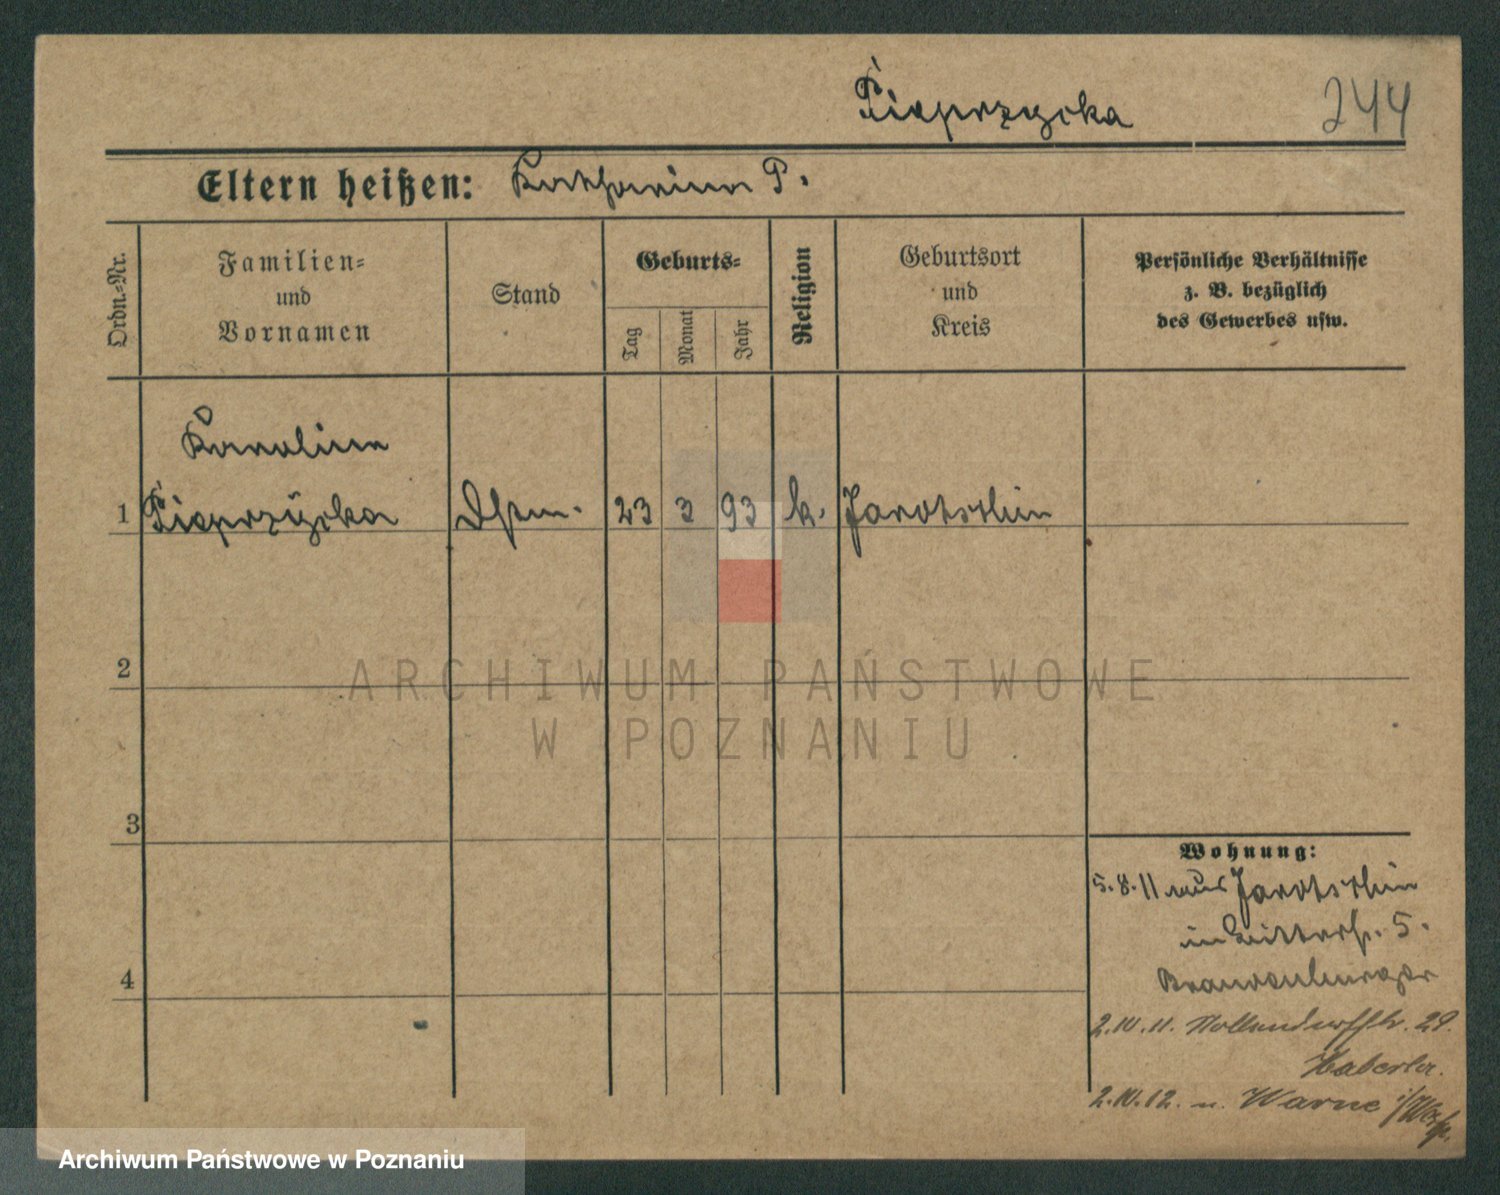 Pieprzycka 244
Eltern heißen: Katharina P.
Ordn.-Nr.
Familien-
und
Vornamen
Stand
Geburts-
Tag
Monat
Jahr
Religion
Geburtsort
und
Kreis
Persönliche Verhältnisse
z. B. bezüglich
des Gewerbes usw.
Karolina
1 Pieprzycka 23 3 93 k. Jarotschin
2
ARCHIWUM PAŃSTWOWE
W POZNANIU
3
4
Wohnung:
5.8.11 aus Jarotschin
in Ritterstr. 5.
Brandenburger
2.IV.11. 29.
Haberler.
2.IV.12. n. Warne
Archiwum Państwowe w Poznaniu